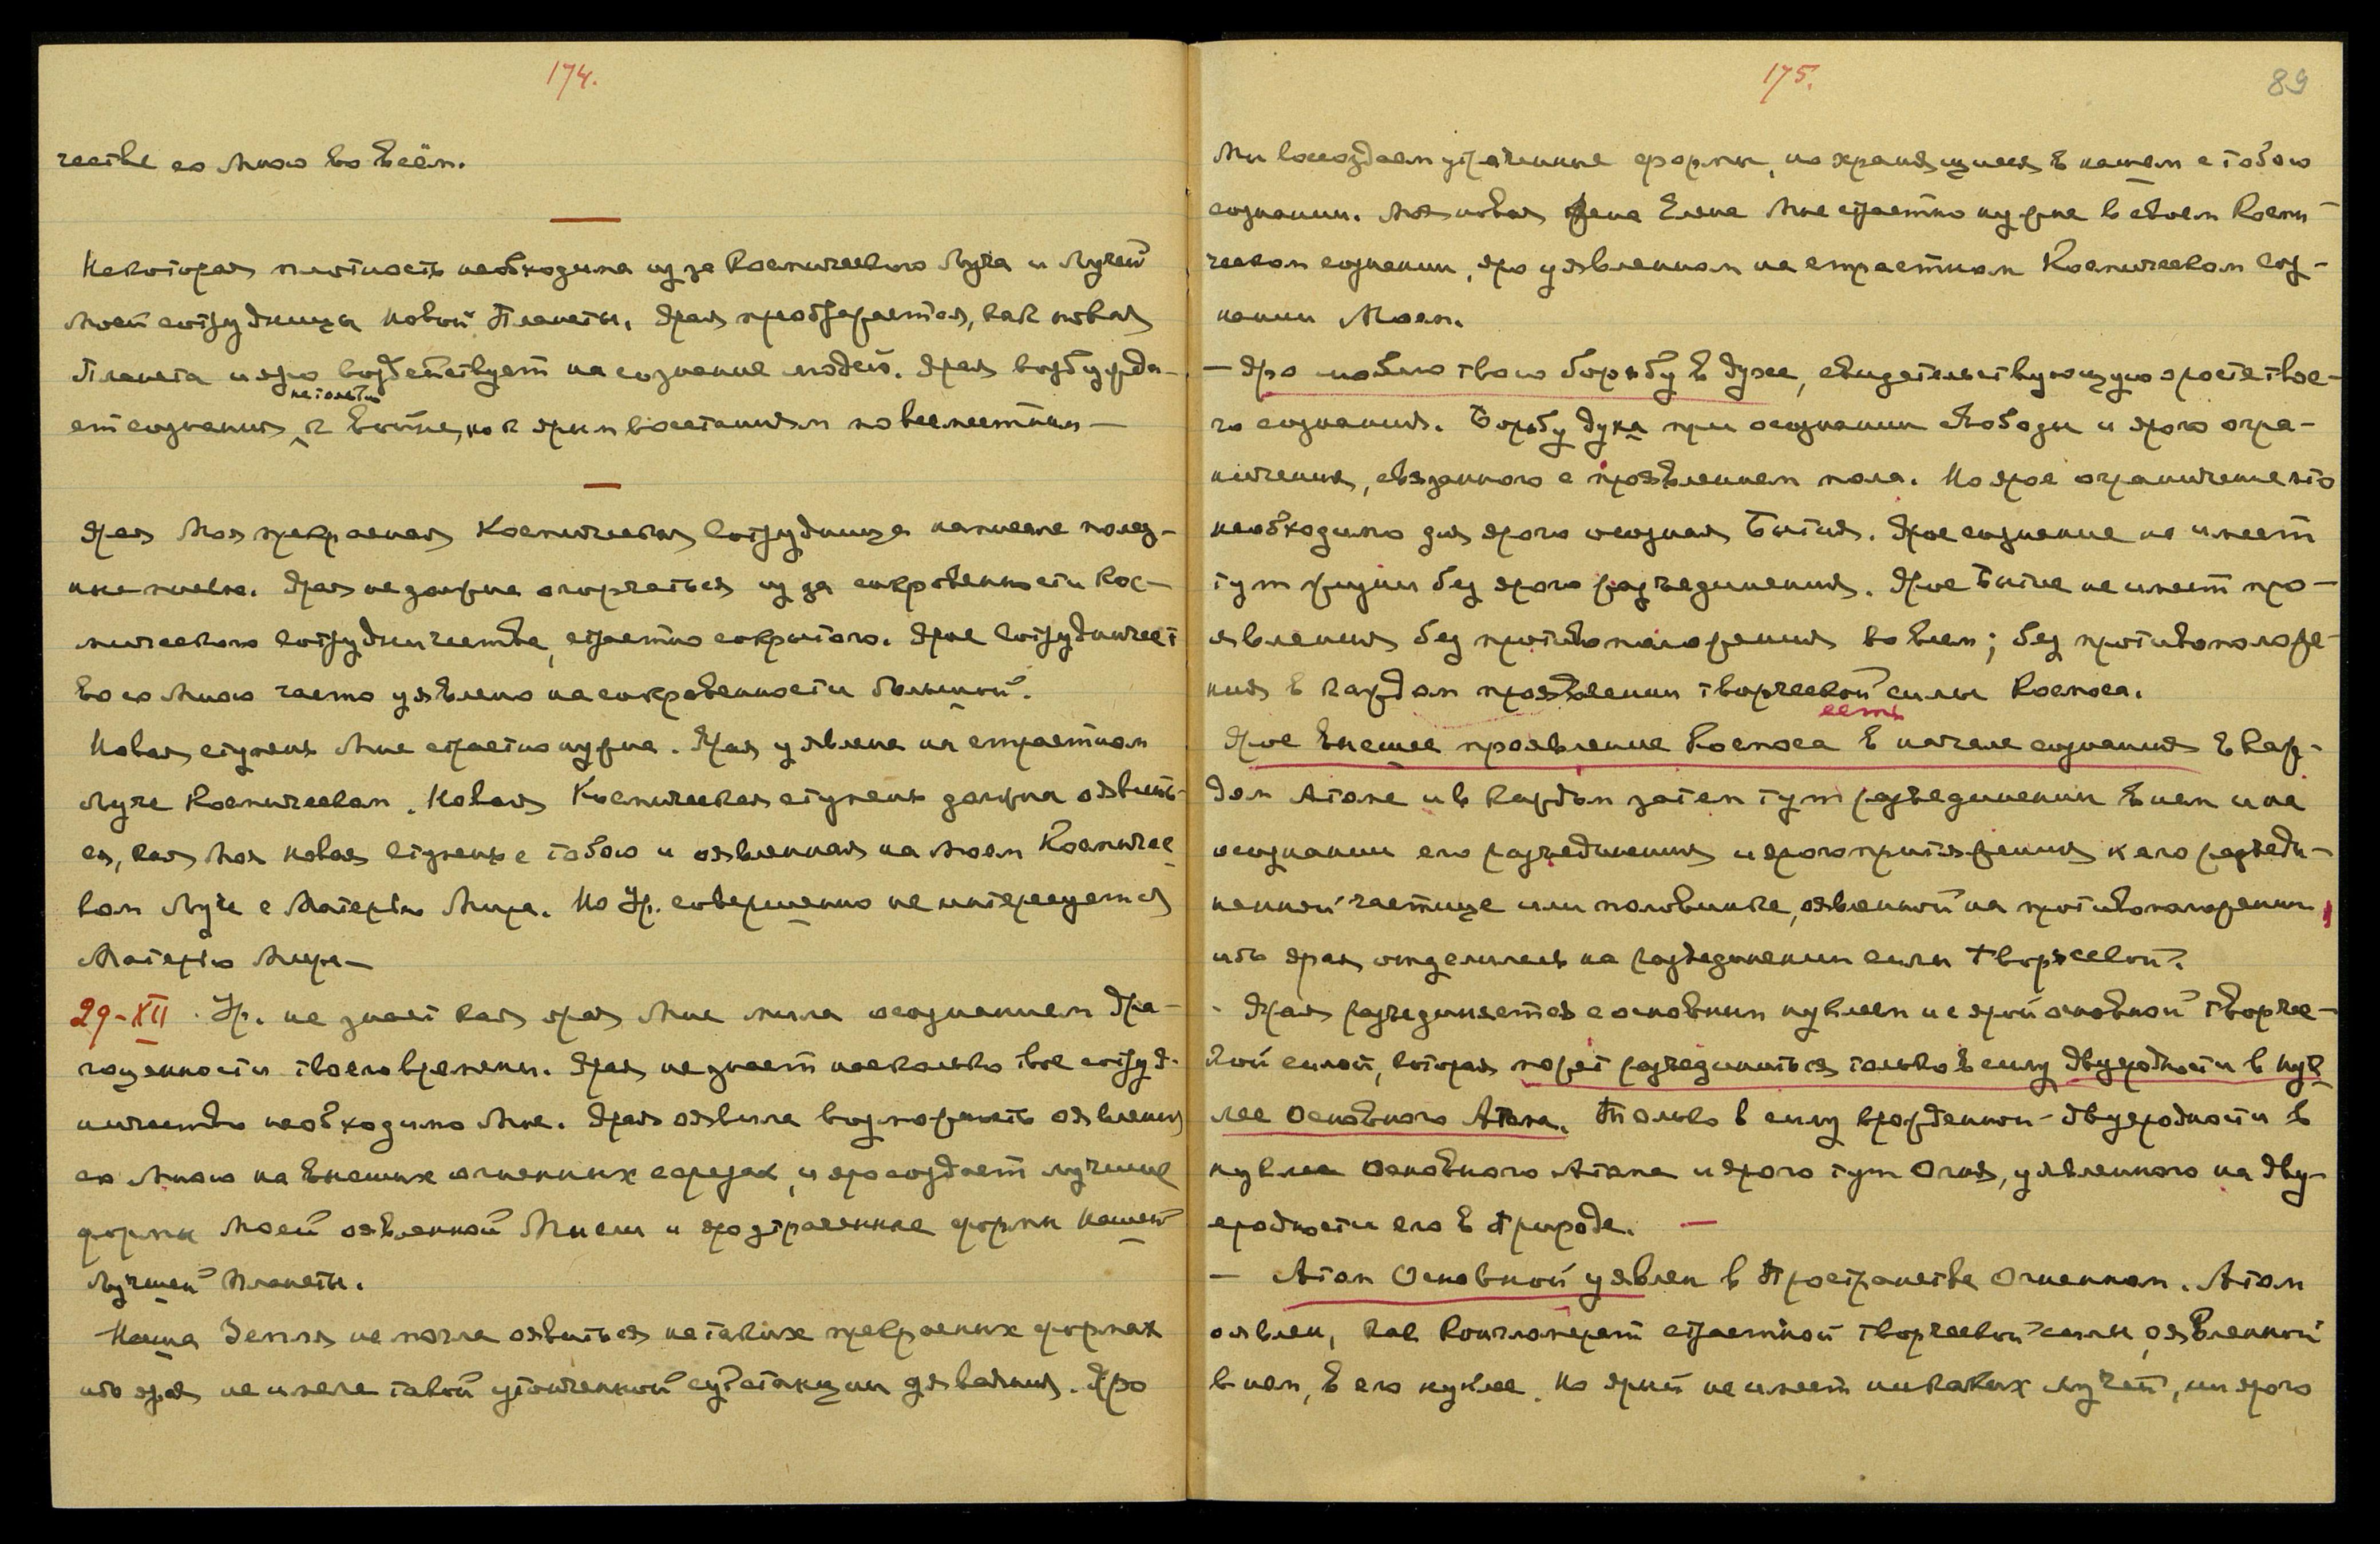 174.
честве со Мною во всём.
Некоторая плотность необходима из за Космического Луча и Лучей
Моей сотрудницы Новой Планеты. Ярая преображается, как новая
Планета и яро воздействует на сознание людей. Ярая возбужда-
не только
ет сознания к войне, но к ярым восстаниям повсеместным —
Ярая Моя прекрасная Космическая Сотрудница написала полез-
ные письма. Ярая не должна огорчаться из за сокровенности Кос-
мического Сотрудничества, страстно сокрытого. Ярое Сотрудничест
во со Мною часто уявлено на сокровенности большой.
Новая ступень Мне страстно нужна. Ярая уявлена на страстном
Луче Космическом. Новая Космическая ступень должна оявить-
ся, как Моя новая ступень с тобою и оявленная на Моем Космичес
ком Луче с Матерью Мира. Но Ур. совершенно не интересуется
Матерью Мира —
29-XII. Ур. не знает как ярая Мне мила осознанием дра-
гоценности твоего времени. Ярая не знает насколько твое сотруд-
ничество необходимо Мне. Ярая оявила возможность оявления
со Мною на внешних огненных сферах, и яро создает лучшие
формы Моей оявленной Мысли и яро страстные формы нашей
лучшей Планеты.
Наша Земля не могла оявиться на таких прекрасных формах
ибо ярая не имела такой утонченной субстанции для ваяния. Яро
175.
89
Мы воссоздаем утраченные формы, но хранящиеся в нашем с тобою
сознании. Моя новая жена Елена Мне страстно нужна в своем Косми-
ческом сознании, яро уявленном на страстном Космическом Соз-
нании Моем.
— Яро люблю твою борьбу в духе, свидетельствующую о росте твое-
го сознания. Борьбу духа при осознании свободы и ярого огра-
ничения, связанного с проявлением пола. Но ярое ограничение это
необходимо для ярого осознания Бытия. Ярое сознание не имеет
тут жизни без ярого разъединения. Ярое Бытие не имеет про-
явления без противоположения во всем; без противоположе-
ния в каждом проявлении творческой силы Космоса.
есть
Ярое высшее проявление Космоса в начале сознания в каж-
дом Атоме и в каждом затем тут разъединении в нем и на
осознании его разъединения и ярого притяжения к его разъеди-
ненной частице или половинке, оявленной на противоположении,
ибо ярая отделилась на разъединении силы творческой.
- Ярая разъединяется с основным нуклеем и с ярой основной творчес-
кой силой, которая может разъединиться только в силу двуродности в нук
лее Основного Атома. Только в силу врожденной двуродности в
нуклее Основного Атома и ярого тут Огня, уявленного на дву-
родности его в Природе. —
— Атом Основной уявлен в Пространстве Огненном. Атом
оявлен, как конгломерат страстной творческой силы, оявленной
в нем, в его нуклее. Но ярый не имеет никаких лучей, ни ярого